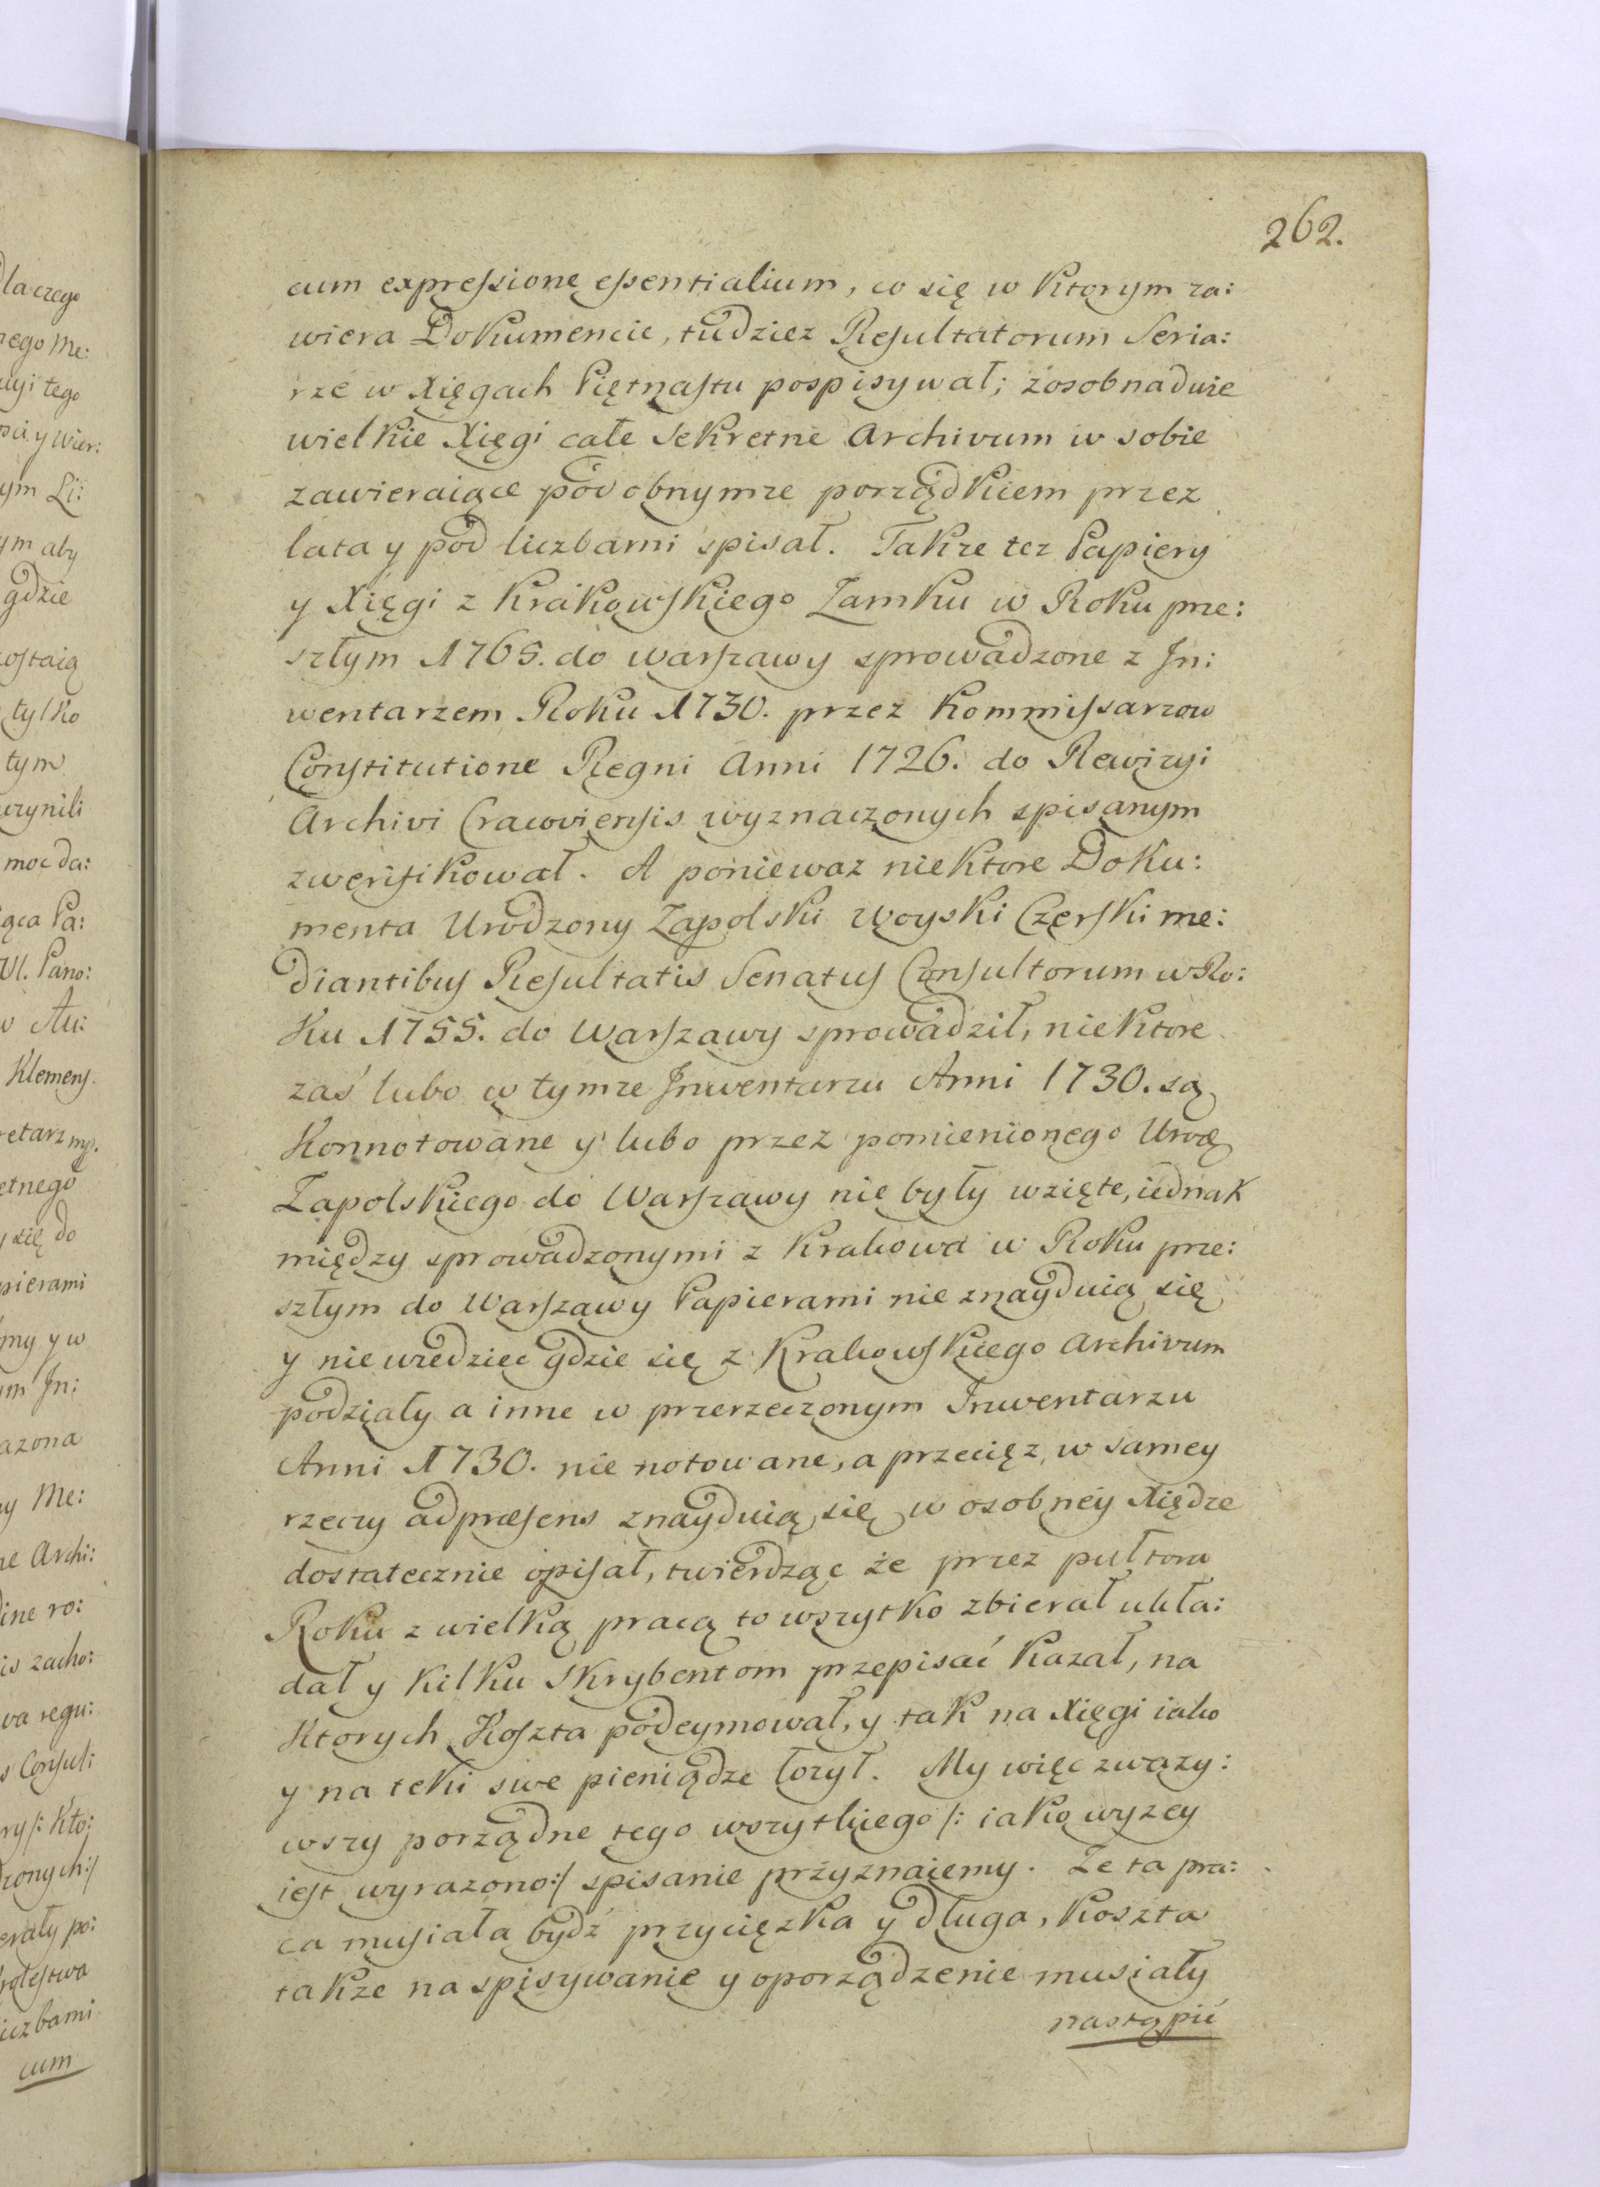 262.
cum expressione essentialium, co się w ktorym za:
wiera Dokumencie, tudziez Resultatorum Seria:
rze w Xięgach Piętnastu pospisywał; zosobna dwie
wielkie Xięgi całe Sekretne Archivum w sobie
zawieraiące podobnymze porządkiem przez
lata y pod liczbami spisał. Takze tez Papiery
y Xięgi z Krakowskiego Zamku w Roku prze:
szłym 1765. do Warszawy sprowadzone z In:
wentarzem Roku 1730. przez Kommissarzow
Constitutione Regni Anni 1726. do Rewizyi
Archivi Cracoviensis wyznaczonych spisanym
zweryfikował. A poniewaz niektore Doku:
menta Urodzony Zapolski Woyski Czerski me:
diantibus Resultatis Senatus Consultorum w Ro:
ku 1755. do Warszawy sprowadził, niektore
zaś lubo w tymze Inwentarzu Anni 1730. są
Konnotowane y lubo przez pomienionego Urodz
Zapolskiego do Warszawy nie były wzięte, iednak
między sprowadzonymi z Krakowa w Roku prze:
szłym do Warszawy Papierami nie znayduią się
y nie wiedziec gdzie się z Krakowskiego Archivum
podziały a inne w przerzeczonym Inwentarzu
Anni 1730. nie notowane, a przecięz w samey
rzeczy adpræsens znayduią się w osobney Xiędze
dostatecznie opisał, twierdząc że przez pułtora
Roku z wielką pracą to wszytko zbierał ukła:
dał y kilku Skrybentom przepisać kazał, na
ktorych Koszta podeymował, y tak na Xięgi iako
y na teki swe pieniądze łozył. My więc zwazy:
wszy porządne tego wszytkiego /: iako wyzey
iest wyrazono :/ spisanie przyznaiemy. Ze ta pra:
ca musiała bydź przycięzka y długa, Koszta
także na spisywanie y oporządzenie musiały
nastąpić
dlaczego
nego Me:
tego
y Wier:
ym Li:
ym aby
gdzie
zostaią
tylko
tym
uczynili
moc da:
Pa:
Ul. Pano:
w Au:
Klemens
retarz mp.
etnego
się do
pierami
my y w
ym In:
azona
y Me:
ne Archi:
dine ro:
is zacho:
wa regu:
s Consul:
ry /: Kto:
dzonych :/
erały po:
Krolestwa
liczbami
cum